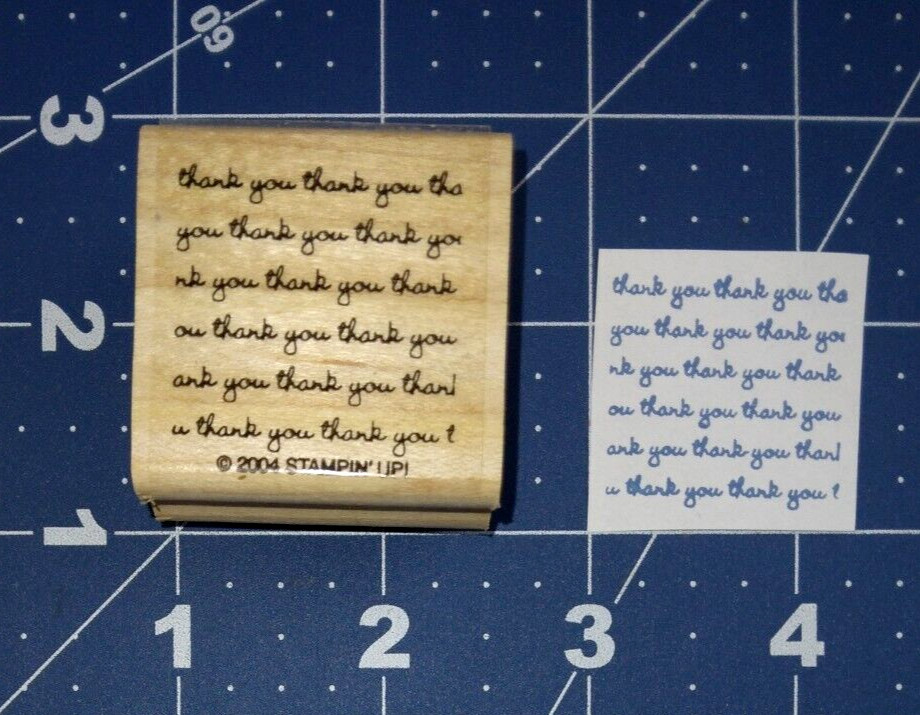 60
3
thank you thank you tha
you thank you thank you
nk you thank you thank
ou thank you thank you
ank you thank you thank
u thank you thank you t
© 2004 STAMPIN' UP!
thank you thank you tha
you thank you thank you
nk you thank you thank
ou thank you thank you
ank you thank you thank
u thank you thank you t
2
1
1 2 3 4